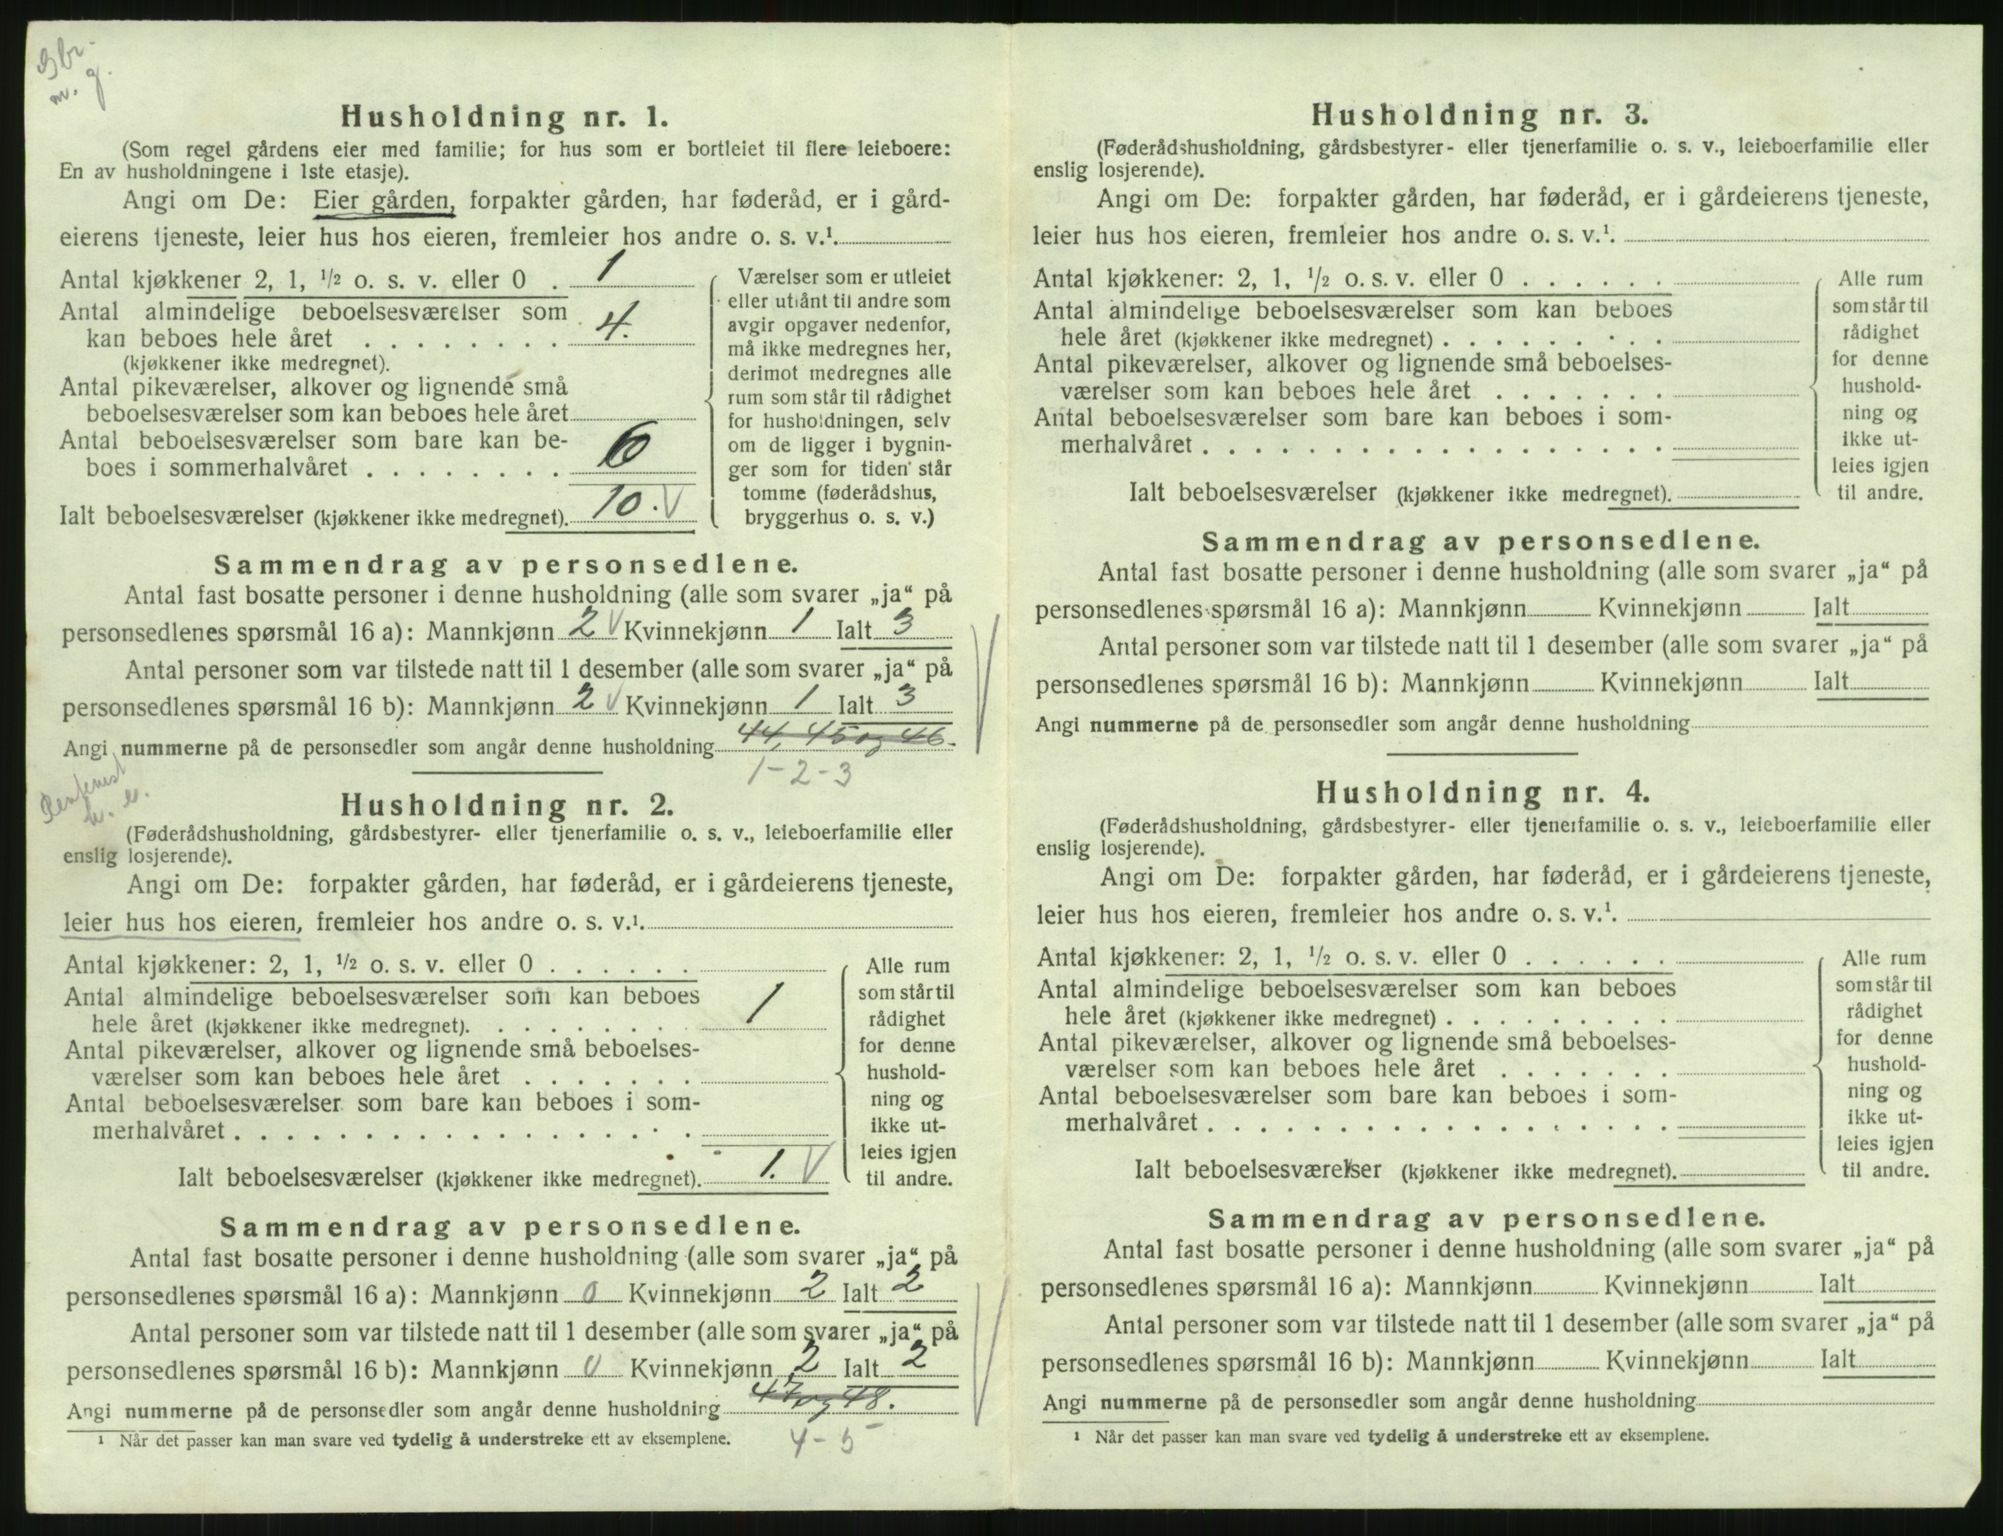 Gbr.
m. g.
Husholdning nr. 1.
(Som regel gårdens eier med familie; for hus som er bortleiet til flere leieboere:
En av husholdningene i 1ste etasje).
Angi om De: Eier gården, forpakter gården, har føderåd, er i gård-
eierens tjeneste, leier hus hos eieren, fremleier hos andre o. s. v.¹.
Antal kjøkkener 2, 1, ½ o. s. v. eller 0 . 1
Antal almindelige beboelsesværelser som
kan beboes hele året . . . . . . . . 4.
(kjøkkener ikke medregnet).
Antal pikeværelser, alkover og lignende små
beboelsesværelser som kan beboes hele året
Antal beboelsesværelser som bare kan be-
boes i sommerhalvåret . . . . . . . 6
Ialt beboelsesværelser (kjøkkener ikke medregnet). 10. V
Værelser som er utleiet
eller utlånt til andre som
avgir opgaver nedenfor,
må ikke medregnes her,
derimot medregnes alle
rum som står til rådighet
for husholdningen, selv
om de ligger i bygnin-
ger som for tiden står
tomme (føderådshus,
bryggerhus o. s. v.)
Sammendrag av personsedlene.
Antal fast bosatte personer i denne husholdning (alle som svarer „ja“ på
personsedlenes spørsmål 16 a): Mannkjønn 2 V Kvinnekjønn 1 Ialt 3
Antal personer som var tilstede natt til 1 desember (alle som svarer „ja“ på
personsedlenes spørsmål 16 b): Mannkjønn 2 V Kvinnekjønn 1 Ialt 3
Angi nummerne på de personsedler som angår denne husholdning 44, 45 og 46.
1-2-3
Husholdning nr. 2.
(Føderådshusholdning, gårdsbestyrer- eller tjenerfamilie o. s. v., leieboerfamilie eller
enslig losjerende).
Angi om De: forpakter gården, har føderåd, er i gårdeierens tjeneste,
leier hus hos eieren, fremleier hos andre o. s. v.¹.
Antal kjøkkener: 2, 1, ½ o. s. v. eller 0 . . . . . .
Antal almindelige beboelsesværelser som kan beboes
hele året (kjøkkener ikke medregnet). . . . . . . . . 1
Antal pikeværelser, alkover og lignende små beboelses-
værelser som kan beboes hele året . . . . . . .
Antal beboelsesværelser som bare kan beboes i som-
merhalvåret . . . . . . . . . . . . . . . . . .
Ialt beboelsesværelser (kjøkkener ikke medregnet). 1. V
Alle rum
som står til
rådighet
for denne
hushold-
ning og
ikke ut-
leies igjen
til andre.
Sammendrag av personsedlene.
Antal fast bosatte personer i denne husholdning (alle som svarer „ja“ på
personsedlenes spørsmål 16 a): Mannkjønn 0 Kvinnekjønn 2 Ialt 2
Antal personer som var tilstede natt til 1 desember (alle som svarer „ja“ på
personsedlenes spørsmål 16 b): Mannkjønn 0 Kvinnekjønn 2 Ialt 2
Angi nummerne på de personsedler som angår denne husholdning 47 og 48.
¹ Når det passer kan man svare ved tydelig å understreke ett av eksemplene.
4-5
Husholdning nr. 3.
(Føderådshusholdning, gårdsbestyrer- eller tjenerfamilie o. s. v., leieboerfamilie eller
enslig losjerende).
Angi om De: forpakter gården, har føderåd, er i gårdeierens tjeneste,
leier hus hos eieren, fremleier hos andre o. s. v.¹.
Antal kjøkkener: 2, 1, ½ o. s. v. eller 0 . . . . . .
Antal almindelige beboelsesværelser som kan beboes
hele året (kjøkkener ikke medregnet) . . . . . . . . .
Antal pikeværelser, alkover og lignende små beboelses-
værelser som kan beboes hele året . . . . . . .
Antal beboelsesværelser som bare kan beboes i som-
merhalvåret . . . . . . . . . . . . . . . . . .
Ialt beboelsesværelser (kjøkkener ikke medregnet).
Alle rum
som står til
rådighet
for denne
hushold-
ning og
ikke ut-
leies igjen
til andre.
Sammendrag av personsedlene.
Antal fast bosatte personer i denne husholdning (alle som svarer „ja“ på
personsedlenes spørsmål 16 a): Mannkjønn Kvinnekjønn Ialt
Antal personer som var tilstede natt til 1 desember (alle som svarer „ja“ på
personsedlenes spørsmål 16 b): Mannkjønn Kvinnekjønn Ialt
Angi nummerne på de personsedler som angår denne husholdning
Husholdning nr. 4.
(Føderådshusholdning, gårdsbestyrer- eller tjenerfamilie o. s. v., leieboerfamilie eller
enslig losjerende).
Angi om De: forpakter gården, har føderåd, er i gårdeierens tjeneste,
leier hus hos eieren, fremleier hos andre o. s. v.¹.
Antal kjøkkener: 2, 1, ½ o. s. v. eller 0 . . . . . .
Antal almindelige beboelsesværelser som kan beboes
hele året (kjøkkener ikke medregnet) . . . . . . . . .
Antal pikeværelser, alkover og lignende små beboelses-
værelser som kan beboes hele året . . . . . . .
Antal beboelsesværelser som bare kan beboes i som-
merhalvåret . . . . . . . . . . . . . . . . . .
Ialt beboelsesværelser (kjøkkener ikke medregnet).
Alle rum
som står til
rådighet
for denne
hushold-
ning og
ikke ut-
leies igjen
til andre.
Sammendrag av personsedlene.
Antal fast bosatte personer i denne husholdning (alle som svarer „ja“ på
personsedlenes spørsmål 16 a): Mannkjønn Kvinnekjønn Ialt
Antal personer som var tilstede natt til 1 desember (alle som svarer „ja“ på
personsedlenes spørsmål 16 b): Mannkjønn Kvinnekjønn Ialt
Angi nummerne på de personsedler som angår denne husholdning
¹ Når det passer kan man svare ved tydelig å understreke ett av eksemplene.